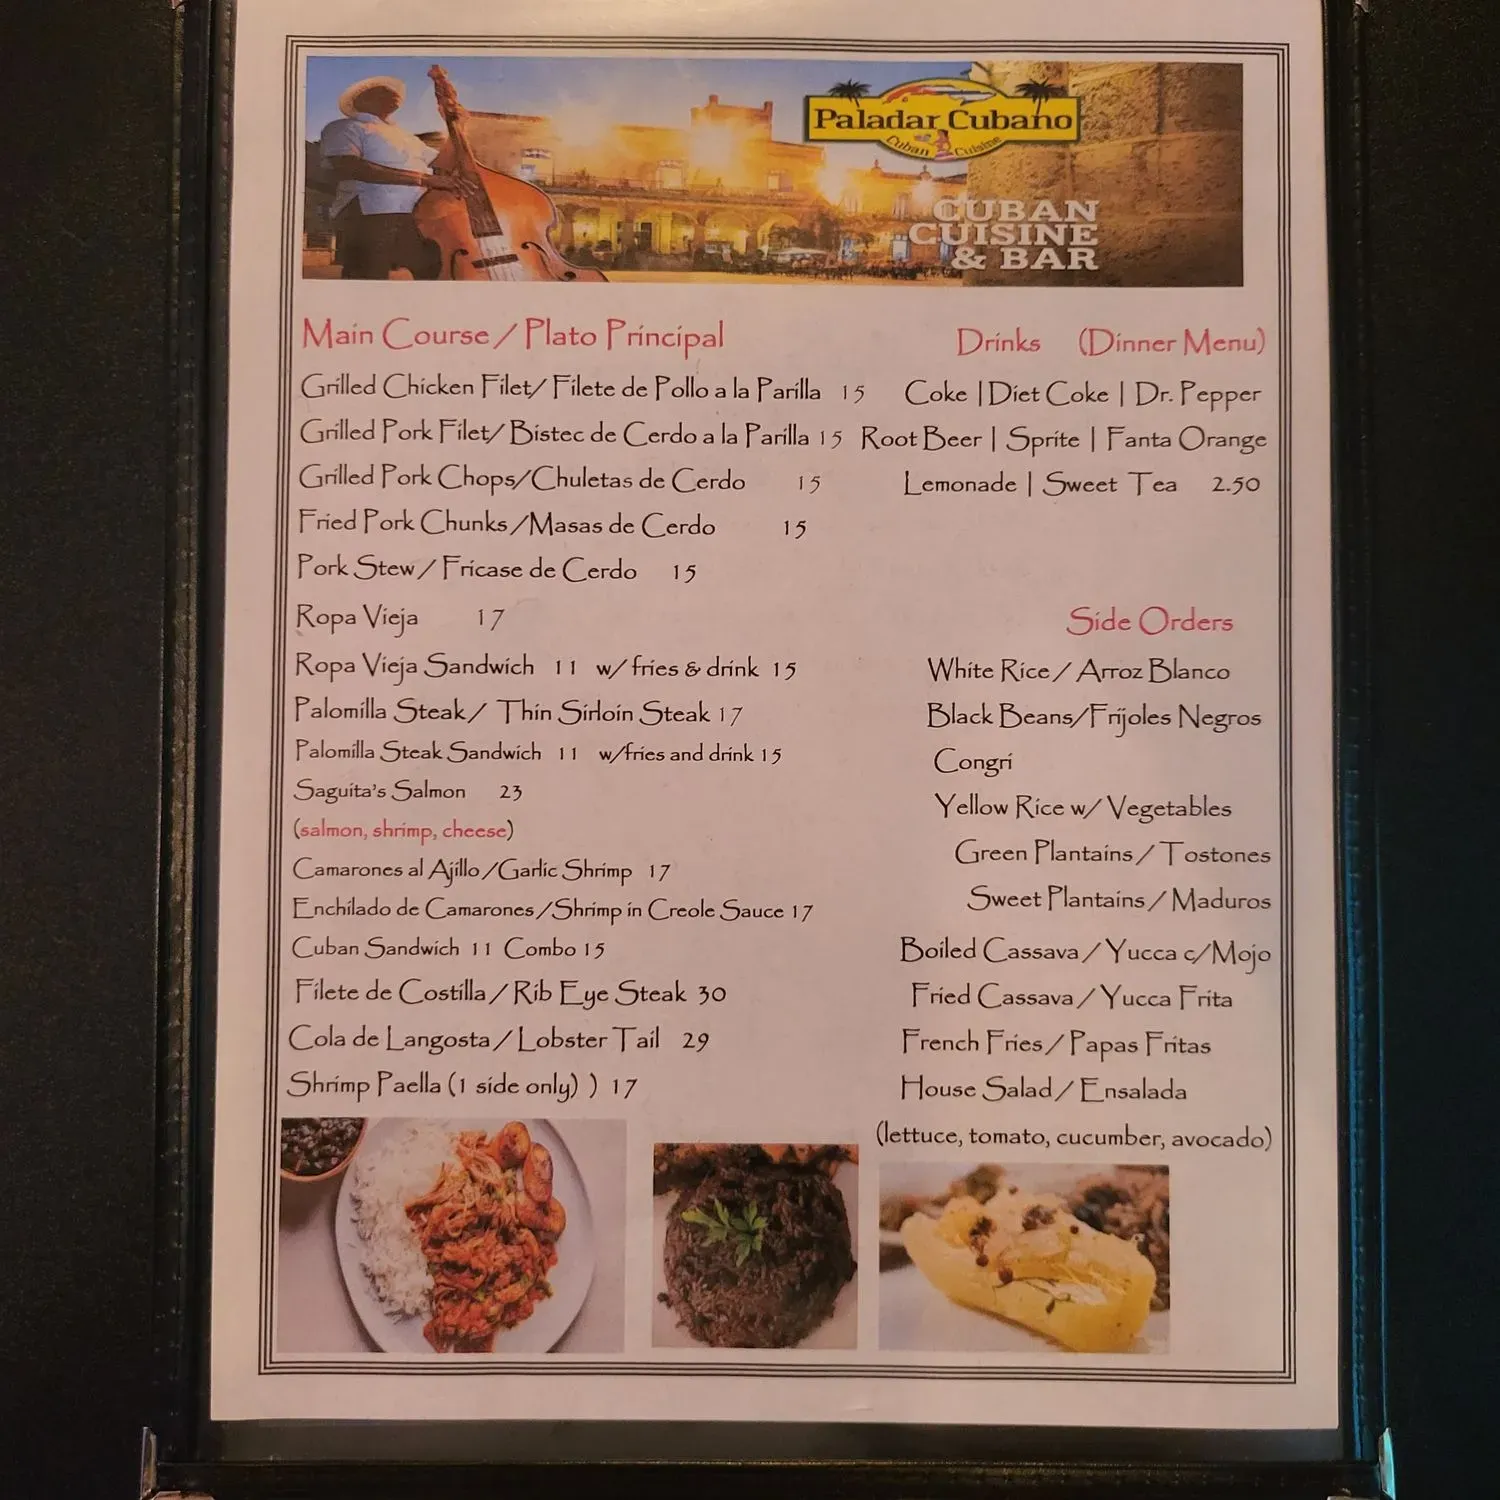 Paladar Cubano
Cuban Cuisine
CUBAN
CUISINE
& BAR
Main Course / Plato Principal
Grilled Chicken Filet/ Filete de Pollo a la Parilla 15
Grilled Pork Filet/ Bistec de Cerdo a la Parilla 15
Grilled Pork Chops/Chuletas de Cerdo 15
Fried Pork Chunks/Masas de Cerdo 15
Pork Stew / Fricase de Cerdo 15
Ropa Vieja 17
Ropa Vieja Sandwich 11 w/ fries & drink 15
Palomilla Steak / Thin Sirloin Steak 17
Palomilla Steak Sandwich 11 w/fries and drink 15
Saguita's Salmon 23
(salmon, shrimp, cheese)
Camarones al Ajillo /Garlic Shrimp 17
Enchilado de Camarones /Shrimp in Creole Sauce 17
Cuban Sandwich 11 Combo 15
Filete de Costilla / Rib Eye Steak 30
Cola de Langosta / Lobster Tail 29
Shrimp Paella (1 side only) ) 17
Drinks (Dinner Menu)
Coke | Diet Coke | Dr. Pepper
Root Beer | Sprite | Fanta Orange
Lemonade | Sweet Tea 2.50
Side Orders
White Rice / Arroz Blanco
Black Beans/Frijoles Negros
Congri
Yellow Rice w/ Vegetables
Green Plantains / Tostones
Sweet Plantains / Maduros
Boiled Cassava / Yucca c/Mojo
Fried Cassava / Yucca Frita
French Fries / Papas Fritas
House Salad / Ensalada
(lettuce, tomato, cucumber, avocado)